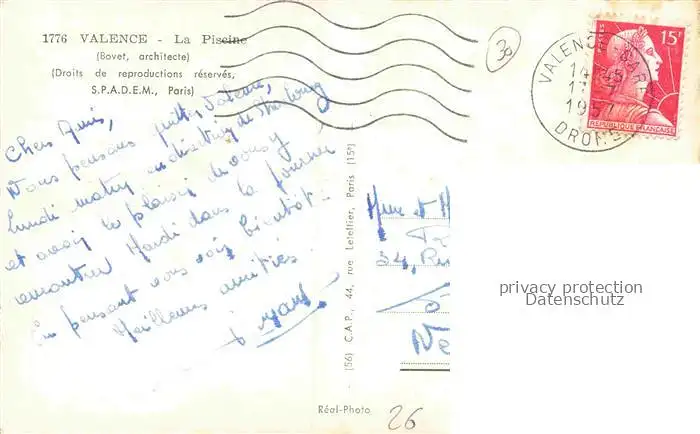 1776 VALENCE - La Piscine
(Bovet, architecte)
(Droits de reproductions réservés,
S.P.A.D.E.M., Paris)
Chers Amis,
Nous pensons quitter Valence,
Lundi matin en direction de Strasbourg
et avoir le plaisir de vous y
rencontrer Mardi dans la journée
En pensant vous voir bientôt.
Meilleures amitiés
(56) C.A.P., 44, rue Letellier, Paris (15e)
Réal-Photo
26
30
VALENCE GARE
1957
DROME
15F
REPUBLIQUE FRANÇAISE
Mme et M
34, Ru
privacy protection
Datenschutz